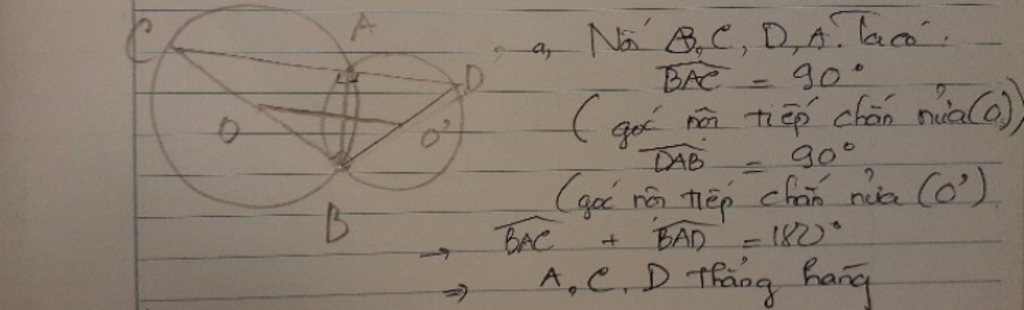 C
A
D
O
O'
B
a, Nối B, C, D, A. Ta có:
BAC = 90°
(góc nội tiếp chắn nửa (O))
DAB = 90°
(góc nội tiếp chắn nửa (O')
→ BAC + BAD = 180°
⇒ A, C, D thẳng hàng